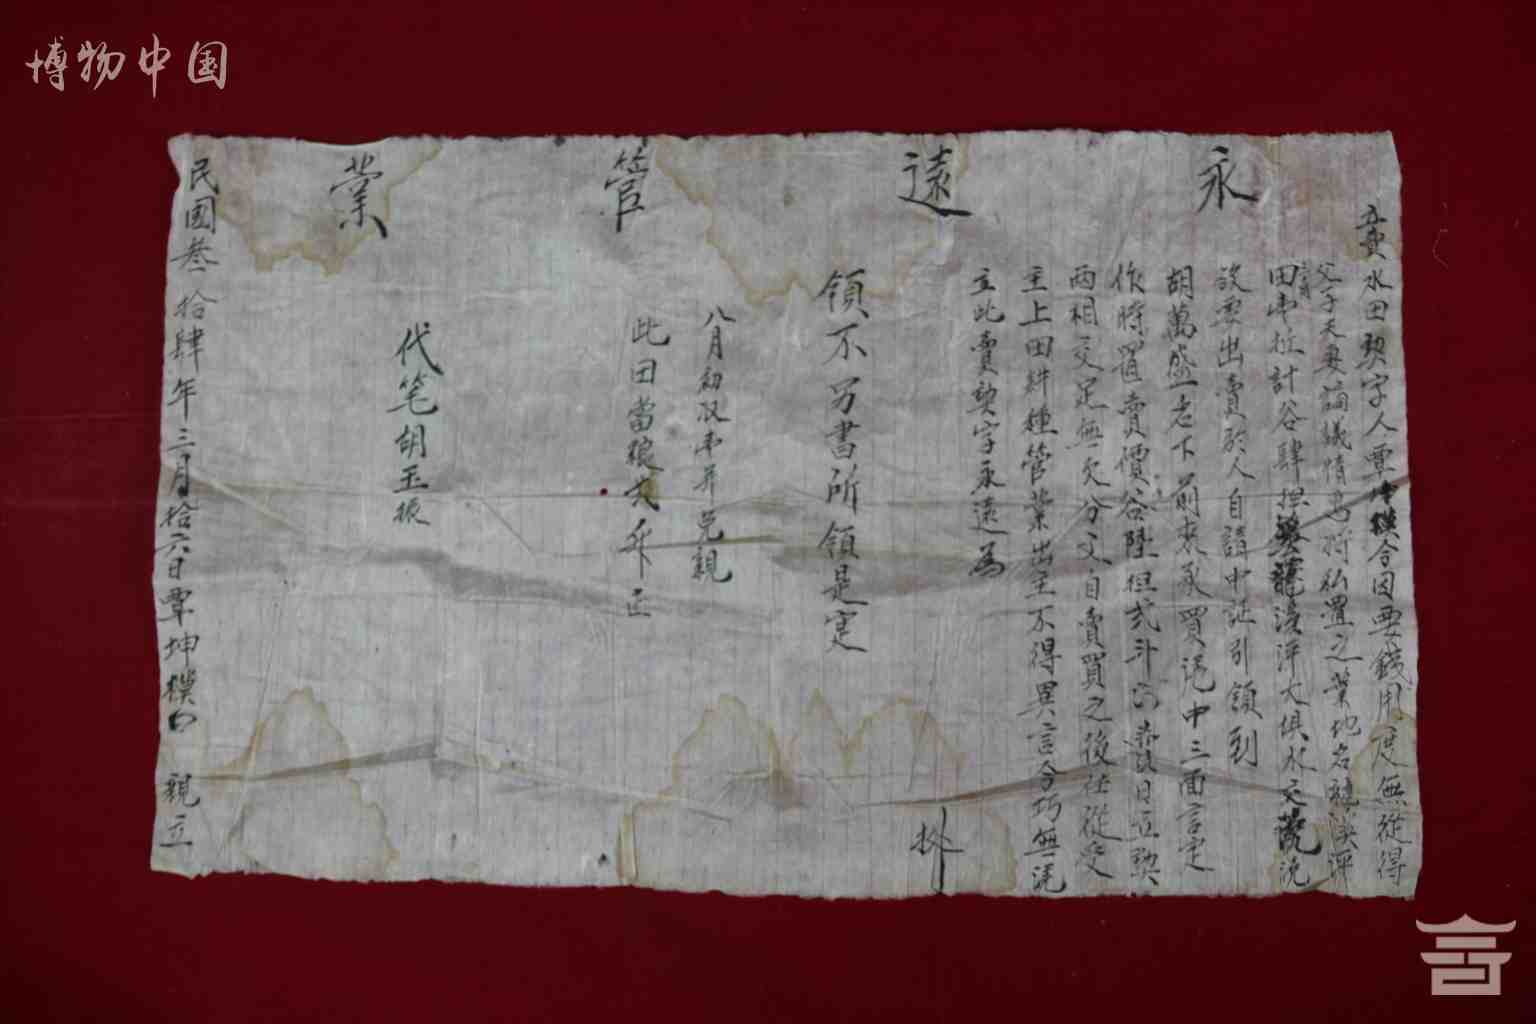 博物中国
永遠管業
賣水田契字人覃坤樸今因要錢用度無從得
父子夫妻論議情愿將私置之業地名
田坵計谷肆担
設要出賣於人自請中証引領到
胡萬盛名下前來承買憑中三面言定
作時置賣價谷陸担弍斗 即日立契
兩相交足無欠分文自賣買之後任從受
主上田耕種管業出主不得異言今巧無憑
立此賣契字永遠為
執
領不另書所領是寔
八月初 親
此田當糧 升正
代笔胡玉振
民國叁拾肆年三月拾六日覃坤樸 親立